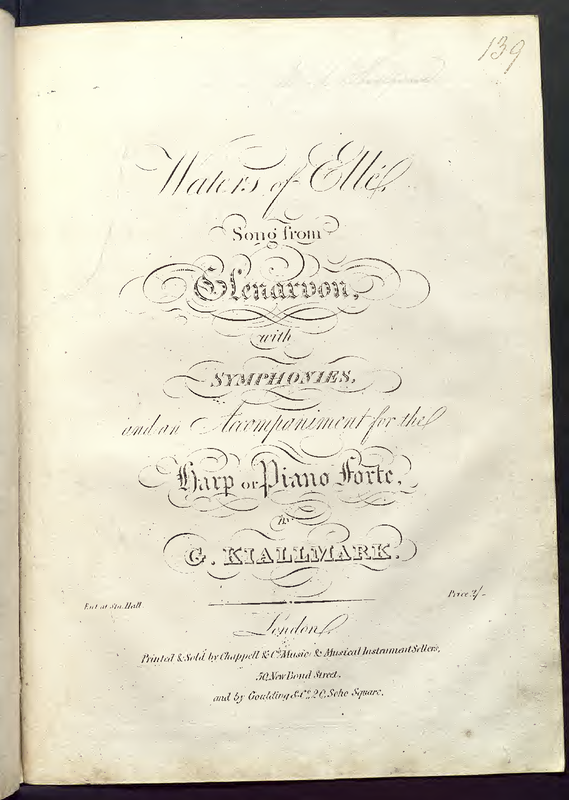 139
Waters of Ellé,
Song from
Glenarvon,
with
SYMPHONIES,
and an Accompaniment for the
Harp or Piano Forte,
by
G. KIALLMARK.
Ent. at Sta. Hall.
Price 2/-
London,
Printed & Sold by Chappell & Co. Music & Musical Instrument Sellers,
50, New Bond Street,
and by Goulding & Co. 20, Soho Square.